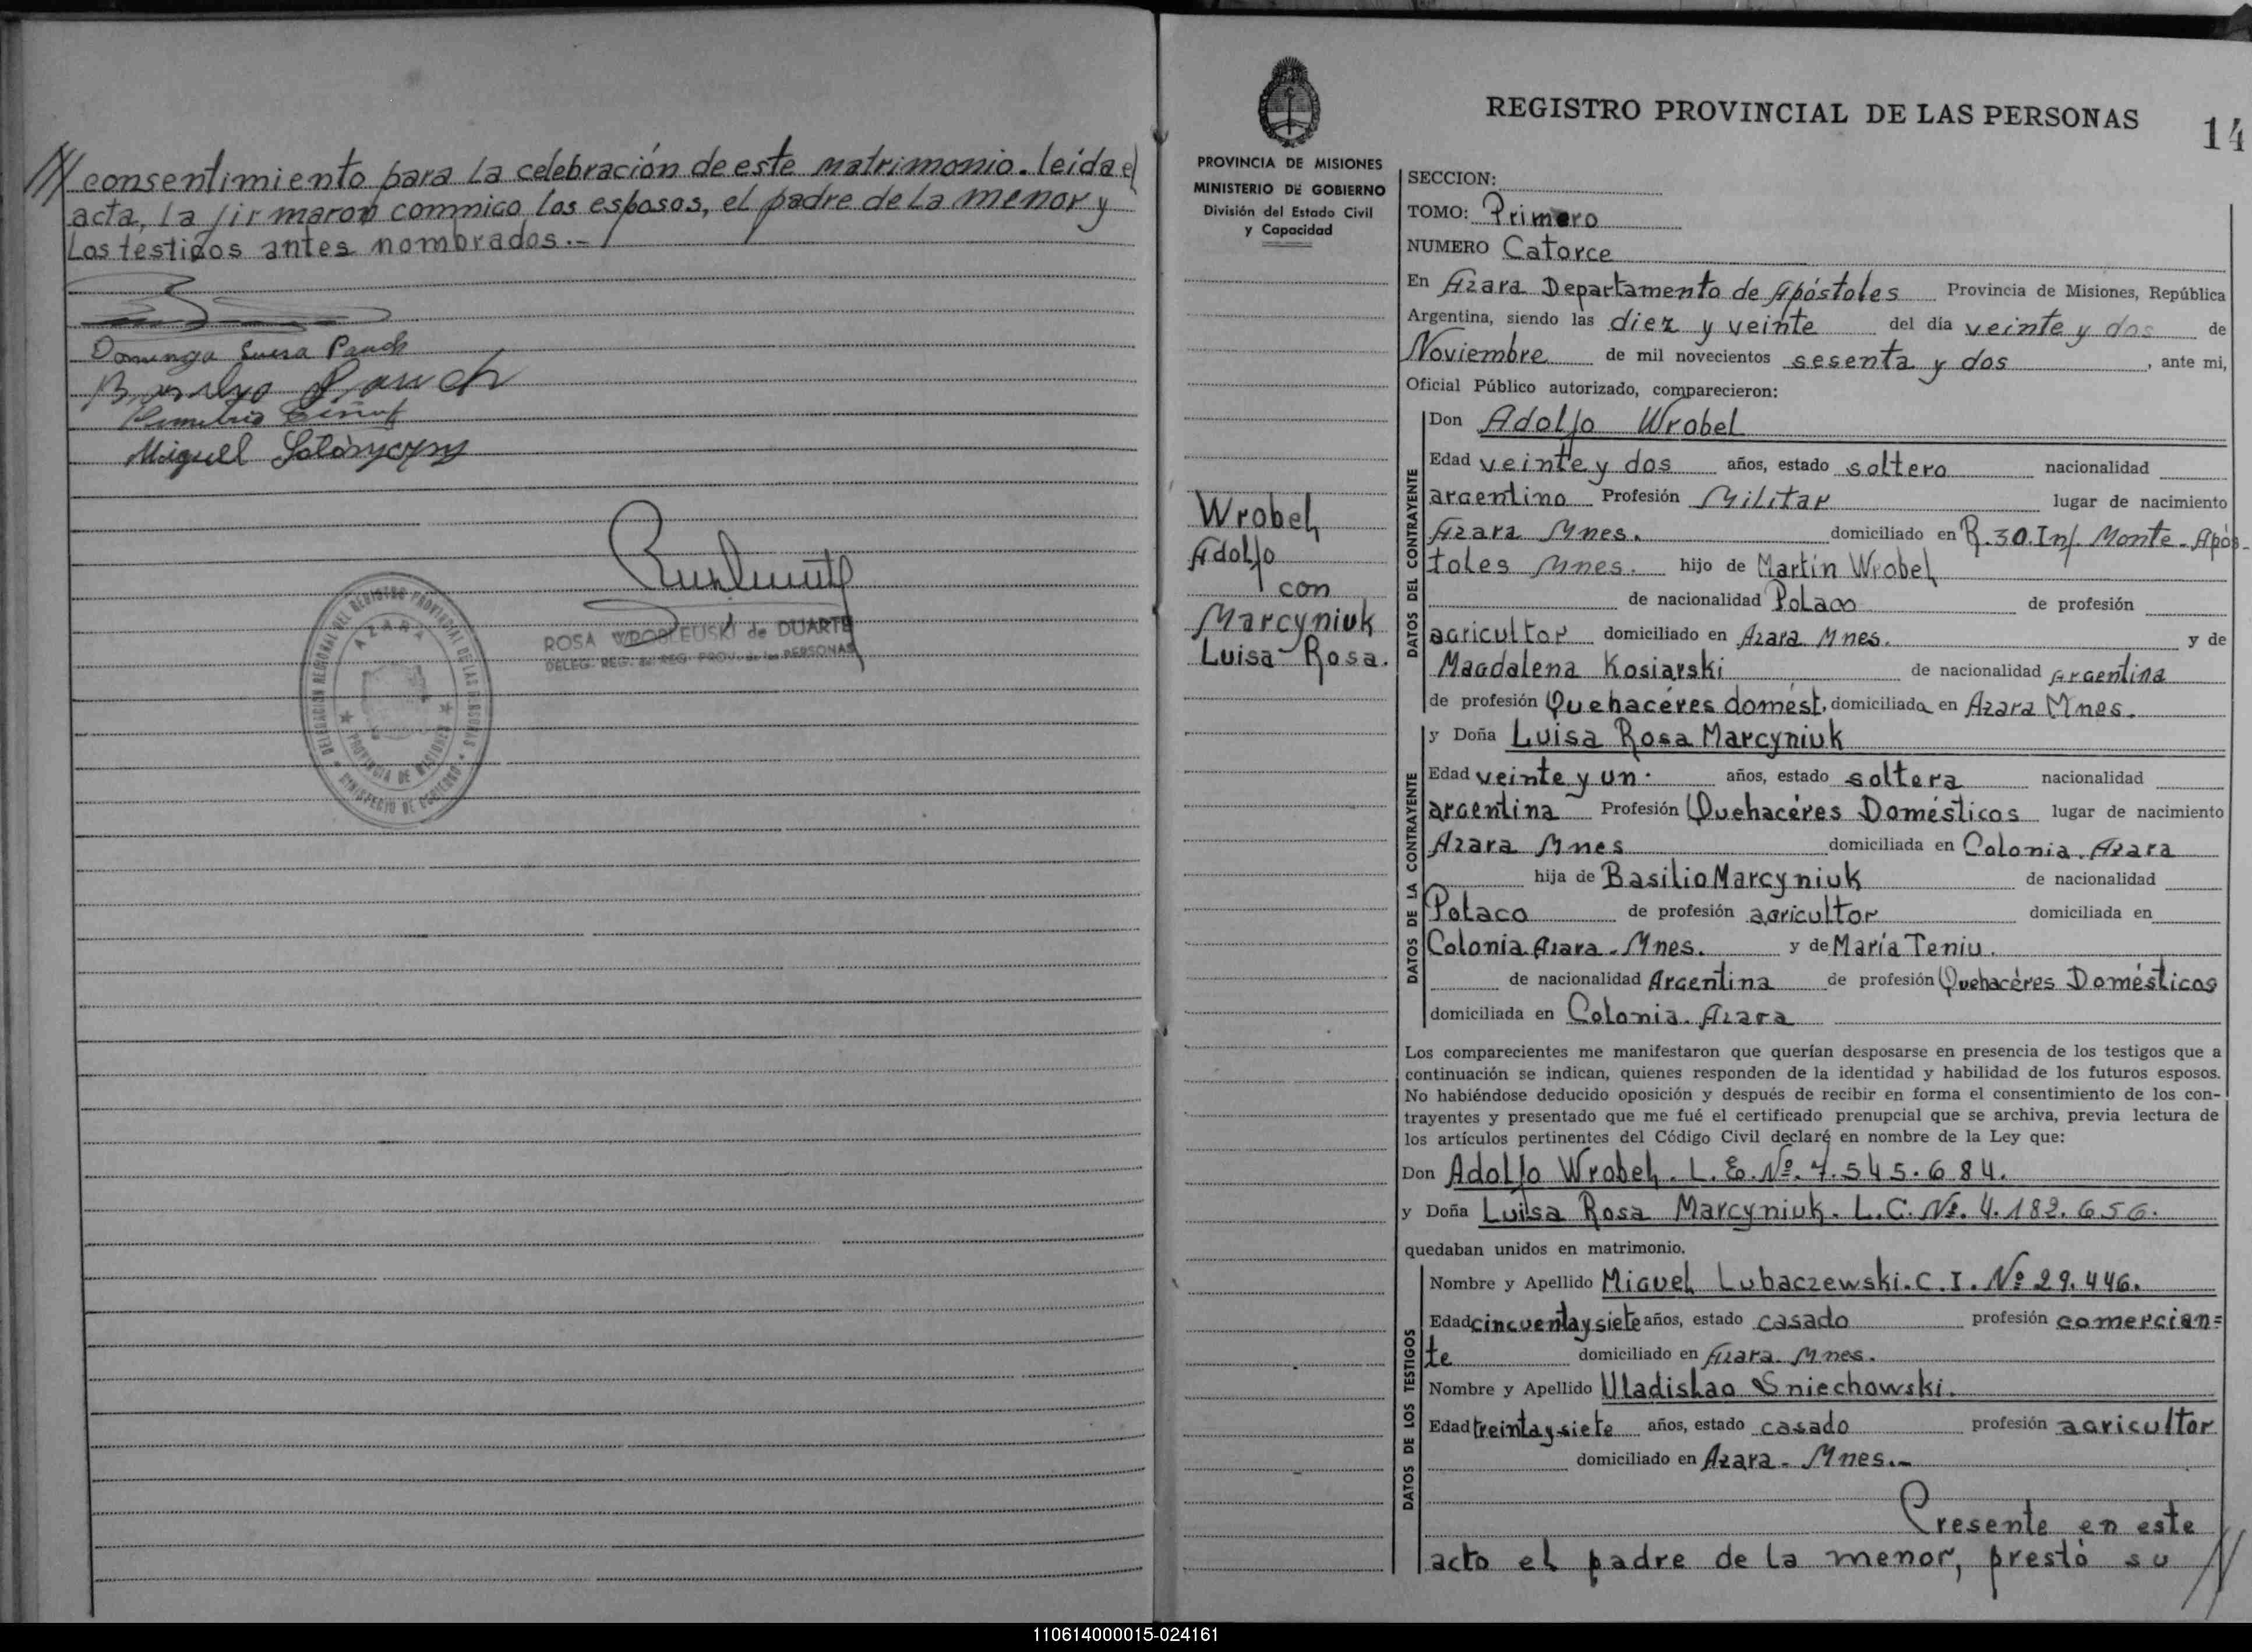 /// consentimiento para la celebración de este matrimonio. leída el
acta, la firmaron conmigo los esposos, el padre de la menor y
Los testigos antes nombrados.-
Dominga Pauch
Pauch
Miguel
ROSA WROBLEUSKI de DUARTE
DELEG. REG. del REG. PROV. de las PERSONAS
DELEGACION REGIONAL DEL REGISTRO PROVINCIAL DE LAS PERSONAS
AZARA
PROVINCIA DE MISIONES
MINISTERIO DE GOBIERNO
PROVINCIA DE MISIONES
MINISTERIO DE GOBIERNO
División del Estado Civil
y Capacidad
Wrobel,
Adolfo
con
Marcyniuk
Luisa Rosa.
REGISTRO PROVINCIAL DE LAS PERSONAS
14
SECCION:
TOMO: Primero
NUMERO Catorce
En Azara Departamento de Apóstoles Provincia de Misiones, República
Argentina, siendo las diez y veinte del día veinte y dos de
Noviembre de mil novecientos sesenta y dos, ante mi,
Oficial Público autorizado, comparecieron:
DATOS DEL CONTRAYENTE
Don Adolfo Wrobel
Edad veinte y dos años, estado soltero nacionalidad
argentino Profesión Militar lugar de nacimiento
Azara Mnes. domiciliado en R.30.Inf. Monte-Após-
toles Mnes. hijo de Martín Wrobel
de nacionalidad Polaco de profesión
agricultor domiciliado en Azara Mnes. y de
Magdalena Kosiarski de nacionalidad Argentina
de profesión Quehacéres domést. domiciliada en Azara Mnes.
DATOS DE LA CONTRAYENTE
y Doña Luisa Rosa Marcyniuk
Edad veinte y un. años, estado soltera nacionalidad
argentina Profesión Quehacéres Domésticos lugar de nacimiento
Azara Mnes domiciliada en Colonia Azara
hija de Basilio Marcyniuk de nacionalidad
Polaco de profesión agricultor domiciliada en
Colonia Azara-Mnes. y de María Teniu.
de nacionalidad Argentina de profesión Quehacéres Domésticos
domiciliada en Colonia. Azara
Los comparecientes me manifestaron que querían desposarse en presencia de los testigos que a
continuación se indican, quienes responden de la identidad y habilidad de los futuros esposos.
No habiéndose deducido oposición y después de recibir en forma el consentimiento de los con-
trayentes y presentado que me fué el certificado prenupcial que se archiva, previa lectura de
los artículos pertinentes del Código Civil declaré en nombre de la Ley que:
Don Adolfo Wrobel. L.E.Nº.7.545.684.
y Doña Luisa Rosa Marcyniuk. L.C.Nº.4.182.656.
quedaban unidos en matrimonio.
DATOS DE LOS TESTIGOS
Nombre y Apellido Miguel Lubaczewski.C.I.Nº29.446.
Edad cincuenta y siete años, estado casado profesión comercian=
te domiciliado en Azara. Mnes.
Nombre y Apellido Uladislao Sniechowski.
Edad treinta y siete años, estado casado profesión agricultor
domiciliado en Azara- Mnes.-
Presente en este
acto el padre de la menor, prestó su //
110614000015-024161